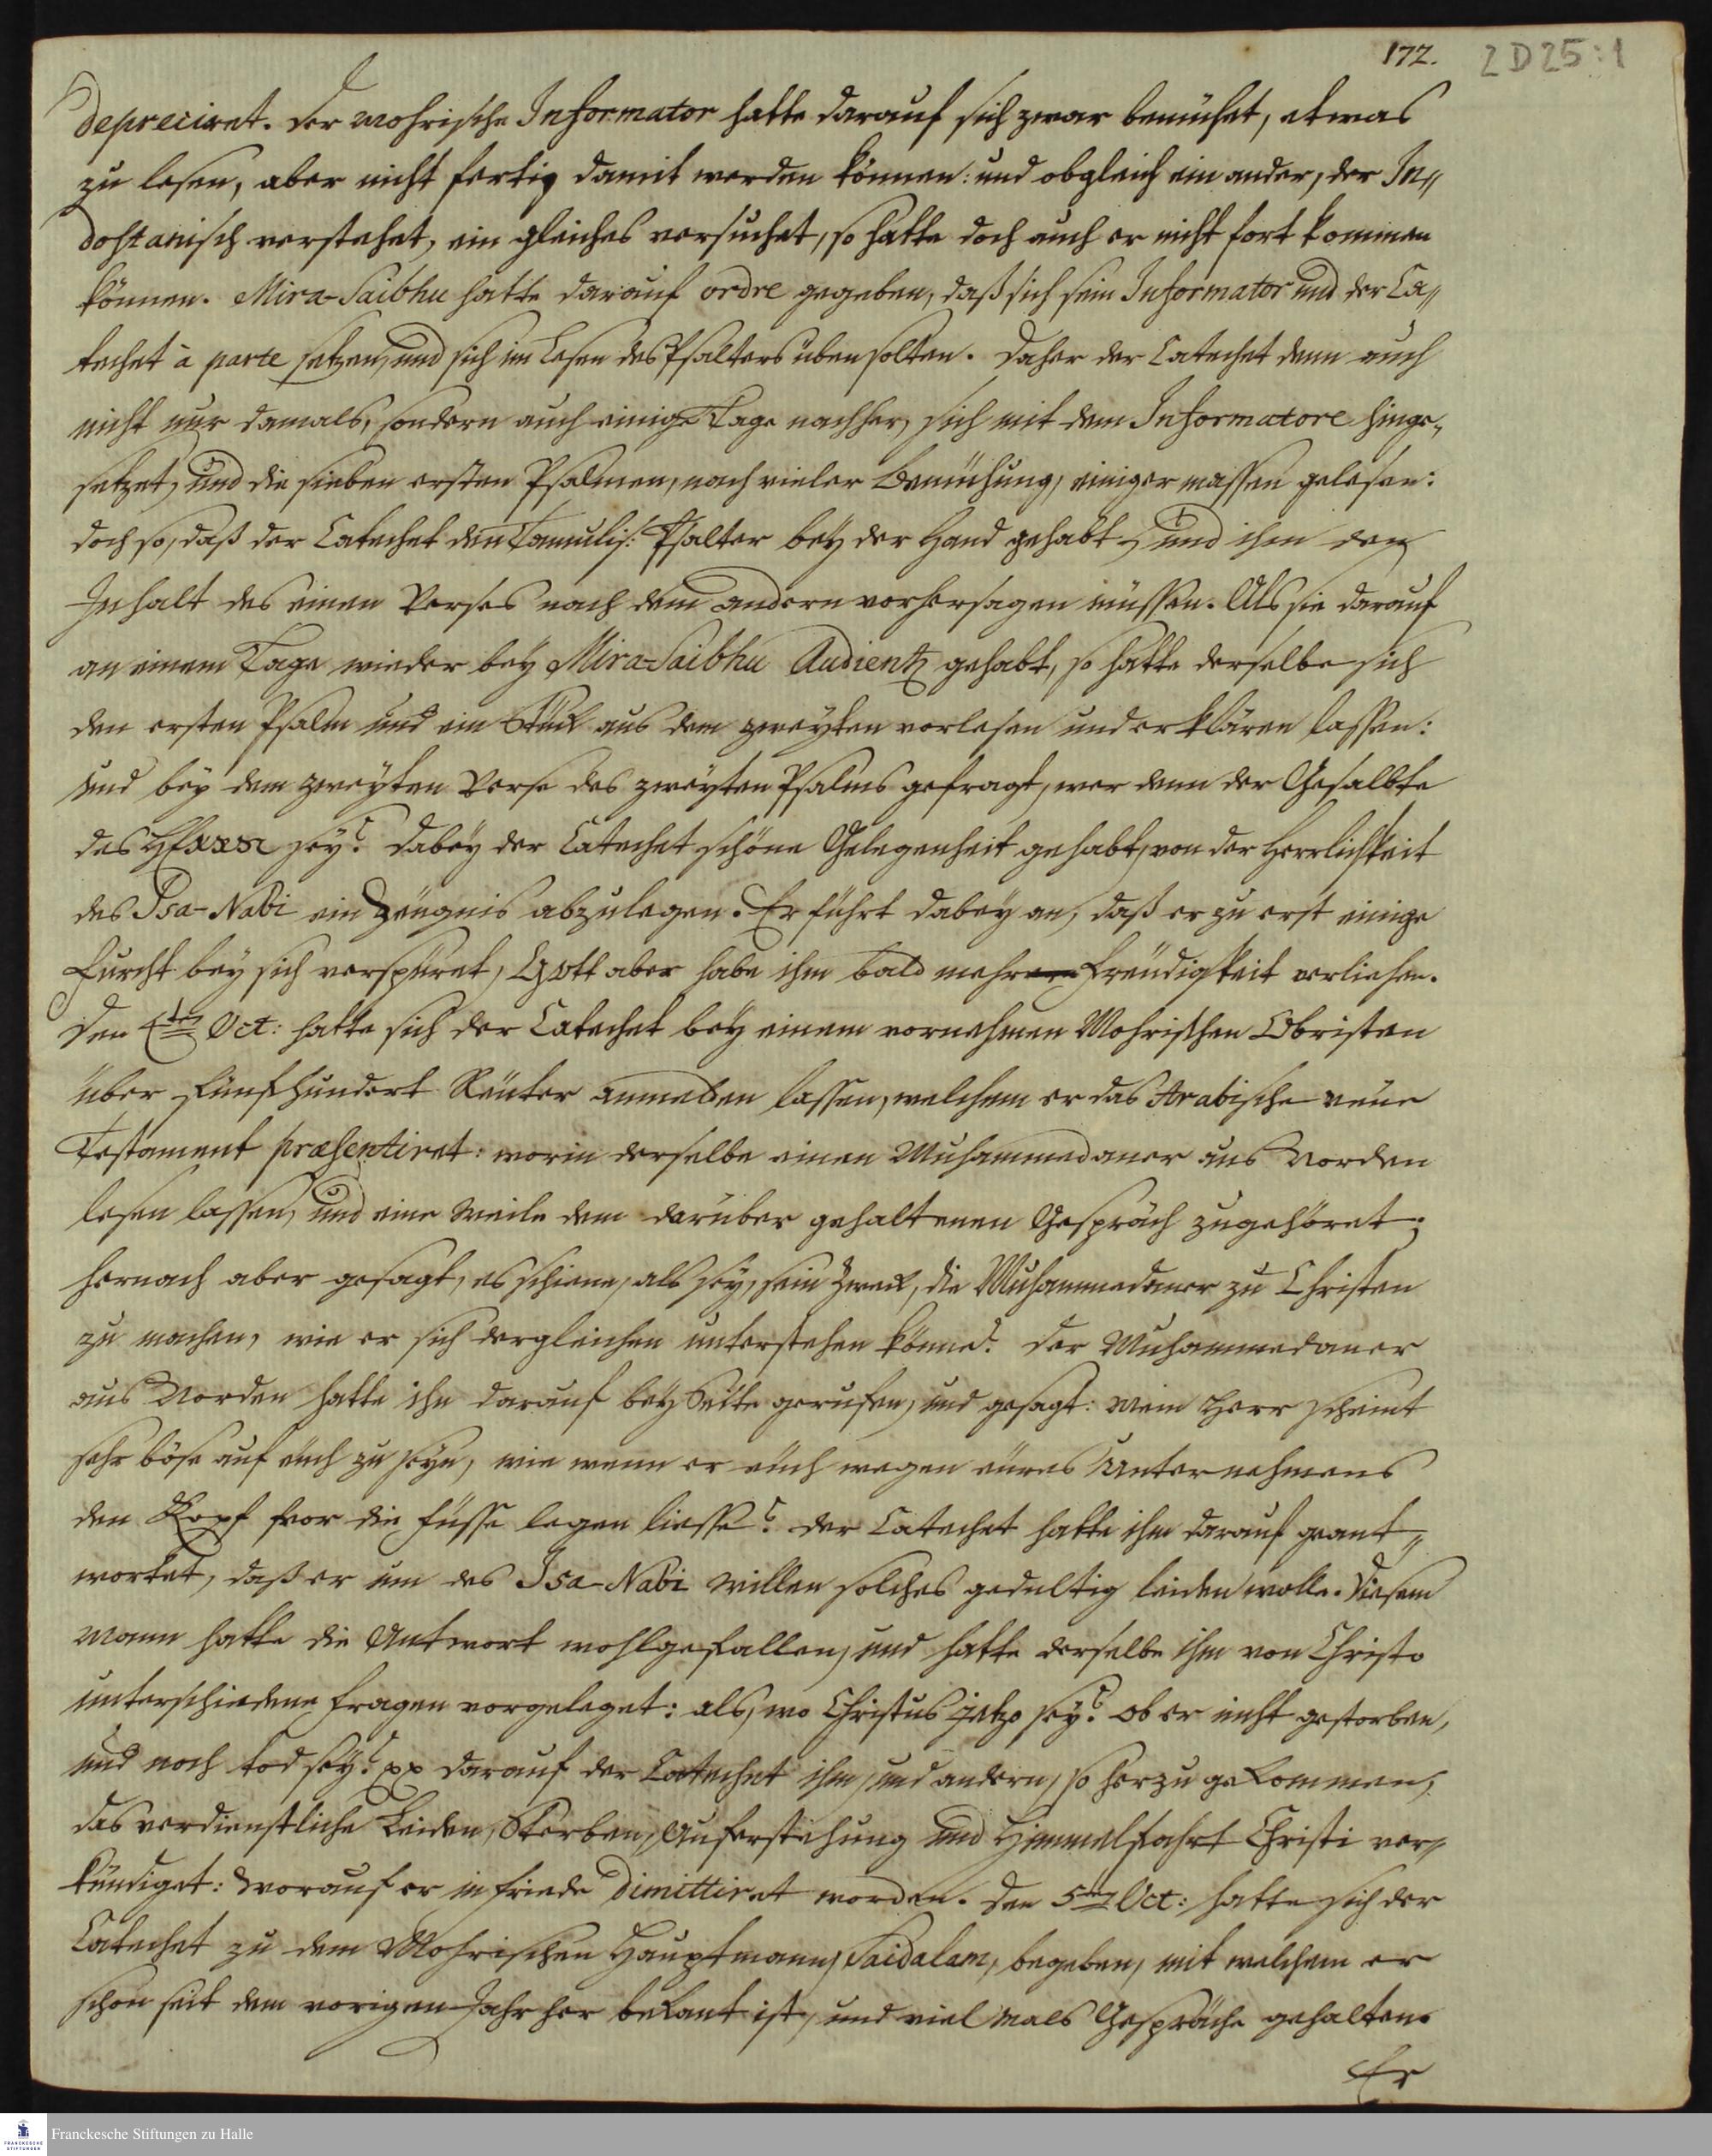 172. 2 D 25 : 1
depreciret. Der Mohrische Informator hatte darauf sich zwar bemühet, etwas
zu lesen, aber nicht fertig damit werden können: und obgleich ein ander, der In„
dostanisch verstehet, ein gleiches versuchet, so hatte doch auch er nicht fort kommen
können. Mira-Saibhu hatte darauf ordre gegeben, daß sich sein Informator und der Ca„
techet à parte setzen, und sich im Lesen des Psalters üben solten. Daher der Catechet denn auch
nicht nur damals, sondern auch einige Tage nachher, sich mit dem Informatore hinge„
setzet, und die sieben ersten Psalmen, nach vieler Bemühung, einiger massen gelesen:
doch so, daß der Catechet den Tamulis: Psalter bey der Hand gehabt, und ihm den
Inhalt des einen Verses nach dem andern vorhersagen müssen. Als sie darauf
an einem Tage wieder bey Mira-Saibhu Audientz gehabt, so hatte derselbe sich
den ersten Psalm und ein Stück aus dem zweyten vorlesen und erklären lassen:
und bey dem zweyten Verse des zweyten Psalms gefragt, wer denn der Gesalbte
des HErrn sey? Dabey der Catechet schöne Gelegenheit gehabt, von der Herrlichkeit
des Isa-Nabi ein Zeugnis abzulegen. Er führt dabey an, daß er zu erst einige
Furcht bey sich verspüret, GOtt aber habe ihm bald mehr Freudigkeit verliehen.
Den 4ten Oct: hatte sich der Catechet bey einem vornehmen Mohrischen Obristen
über Fünfhundert Reuter anmelden lassen, welchem er das Arabische neue
Testament præsentiret: worin derselbe einen Muhammedaner aus Norden
lesen lassen, und eine Weile dem darüber gehaltenen Gespräch zugehöret;
hernach aber gesagt, es schiene, als sey, sein Zweck, die Muhammedaner zu Christen
zu machen, wie er sich dergleichen unterstehen könne? Der Muhammedaner
aus Norden hatte ihn darauf bey Seite gerufen, und gesagt: mein Herr scheint
sehr böse auf euch zu seyn, wie wenn er euch wegen eures Unternehmens
den Kopf vor die Füsse legen liesse? Der Catechet hatte ihm darauf geant„
wortet, daß er um des Isa-Nabi willen solches gedultig leiden wolle. Diesem
Mann hatte die Antwort wohlgefallen, und hatte derselbe ihm von Christo
unterschiedene Fragen vorgeleget: als, wo Christus jetzo sey? ob er nicht gestorben,
und noch tod sey? pp darauf der Catechet ihm, und andern, so herzu gekommen,
das verdienstliche Leiden, Sterben, Auferstehung und Himmelfahrt Christi ver„
kündiget: Worauf er in Friede dimittiret worden. Den 5ten Oct: hatte sich der
Catechet zu dem Mohrischen Hauptmann, Saidalam, begeben, mit welchem er
schon seit dem vorigen Jahr her bekant ist, und viel mals Gespräche gehalten.
Er
Franckesche Stiftungen zu Halle